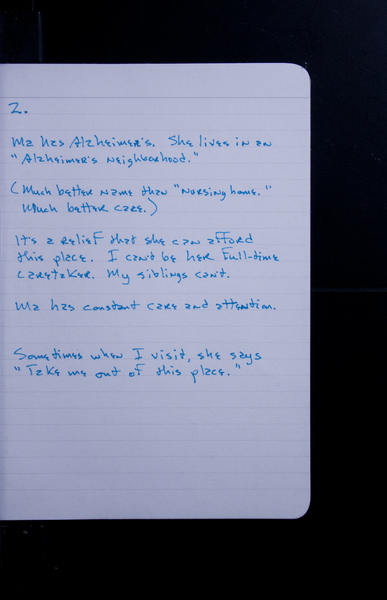 2.
Ma has Alzheimer's. She lives in an
"Alzheimer's neighborhood."
(Much better name than "nursing home."
Much better care.)
It's a relief that she can afford
this place. I can't be her full-time
caretaker. My siblings can't.
Ma has constant care and attention.
Sometimes when I visit, she says
"Take me out of this place."